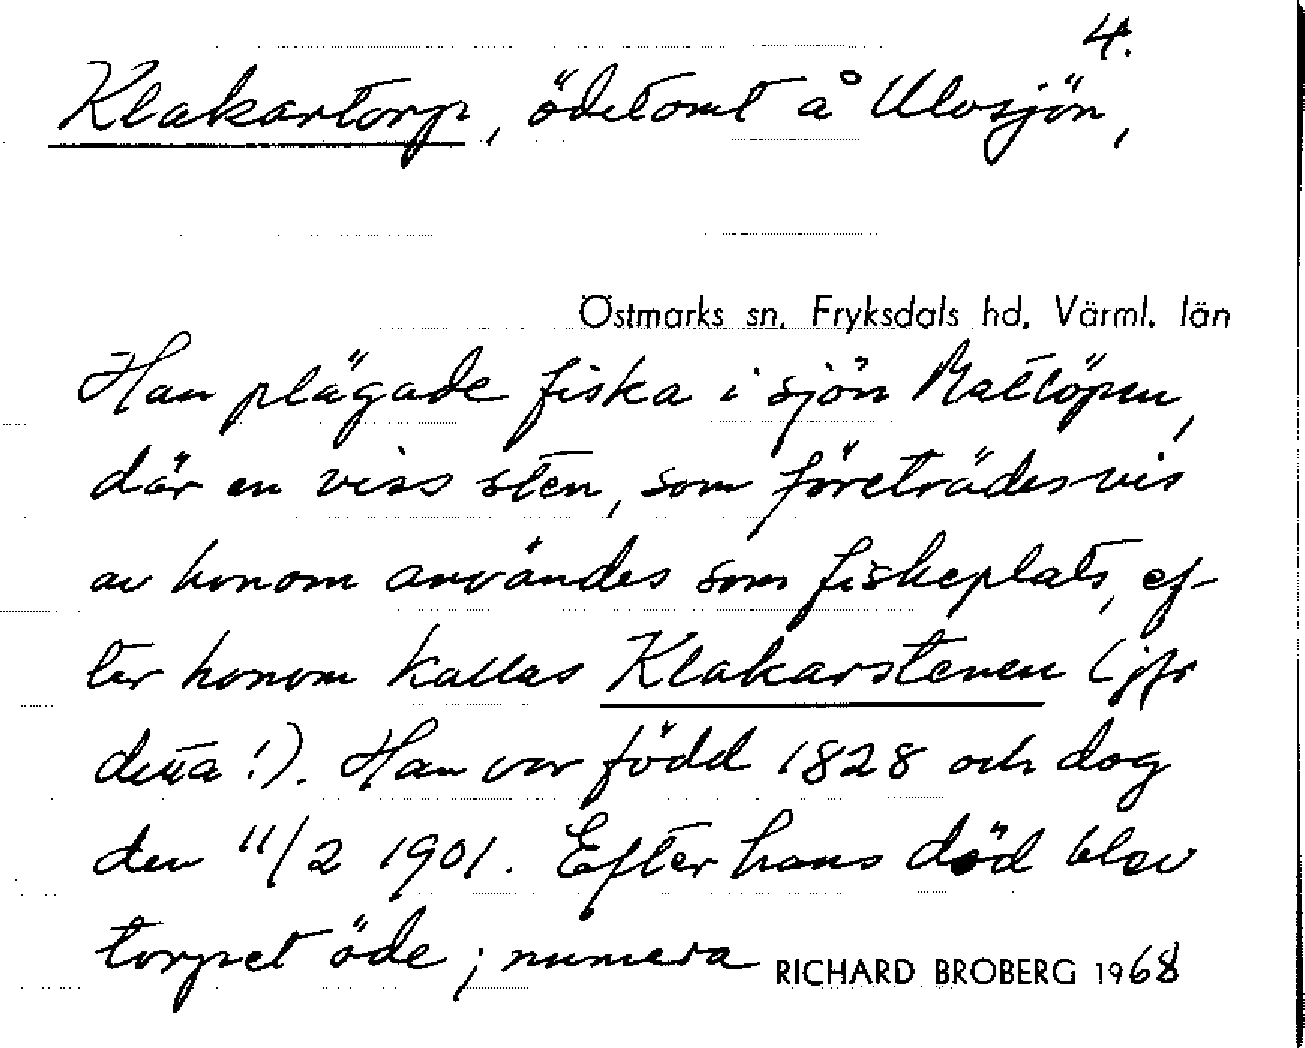 4.
Klakartorp, ödetomt å Ulvsjön,
Östmarks sn. Fryksdals hd. Värml. län
Han plägade fiska i sjön Mattöpen,
där en viss sten, som företrädesvis
av honom användes som fiskeplats, ef-
ter honom kallas Klakarstenen (jfr
detta!). Han var född 1828 och dog
den 11/2 1901. Efter hans död blev
torpet öde; numera
RICHARD BROBERG 1968